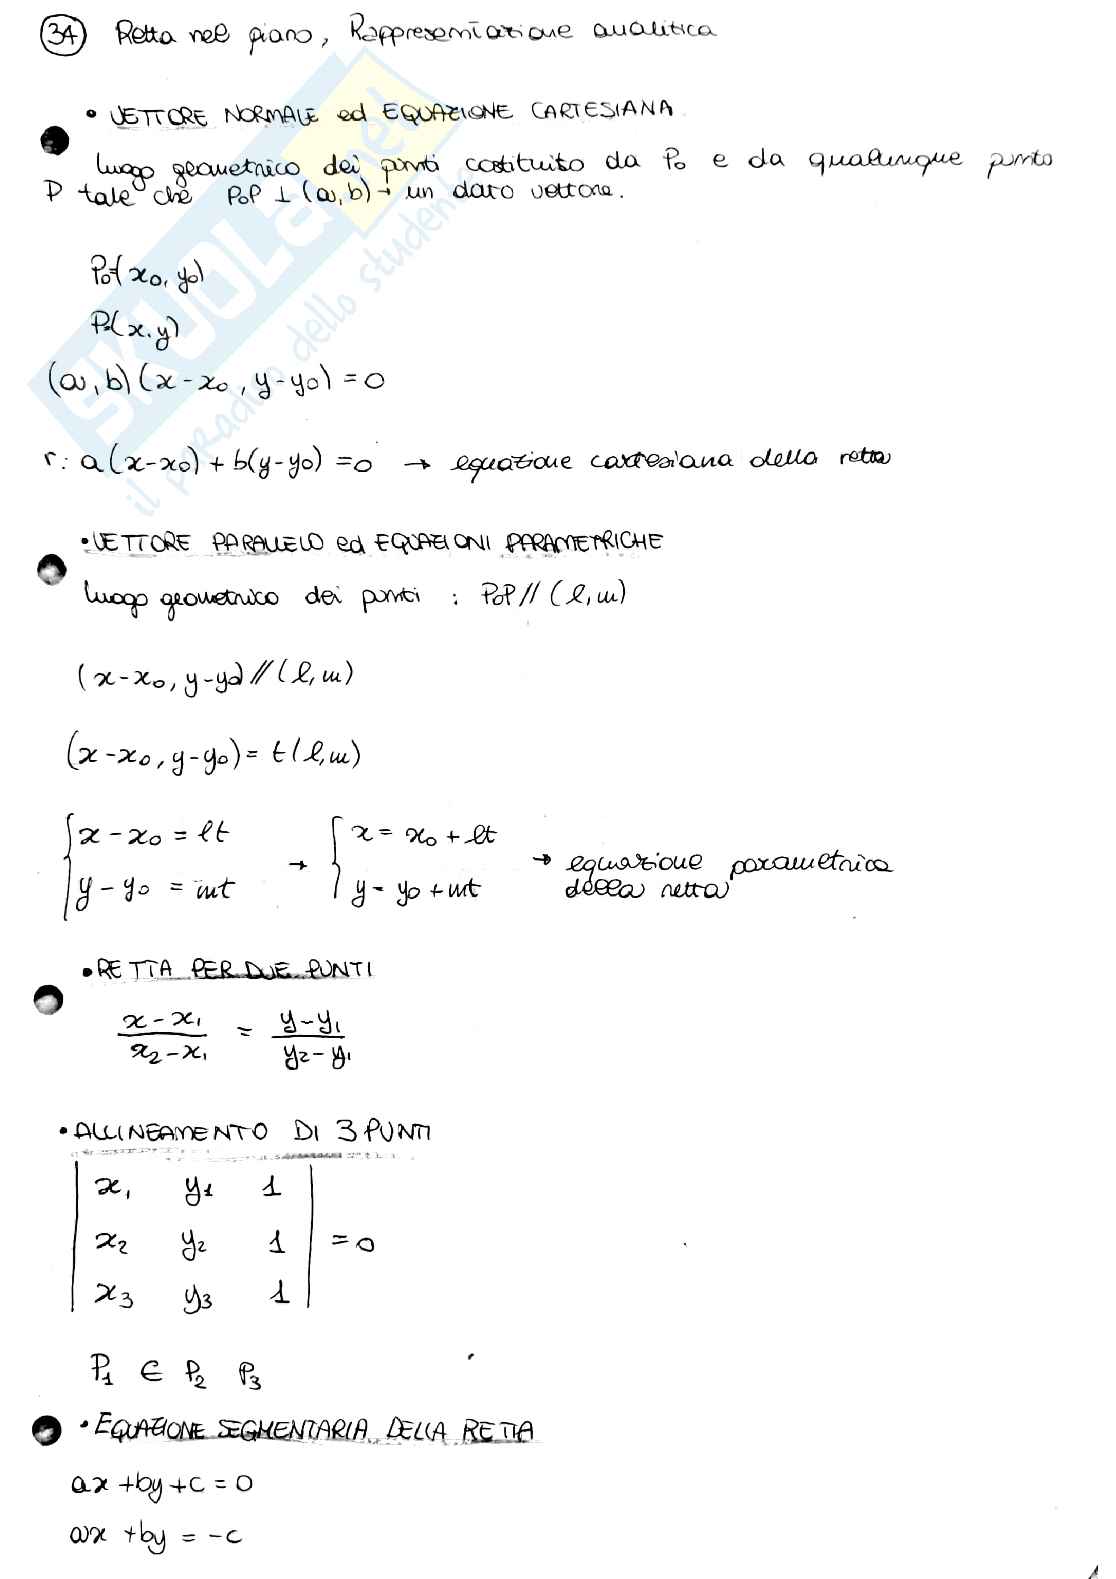 34 Retta nel piano, Rappresentazione analitica
• VETTORE NORMALE ed EQUAZIONE CARTESIANA
luogo geometrico dei punti costituito da P₀ e da qualunque punto
P tale che P₀P ⊥ (a, b) → un dato vettore.
P₀=(x₀, y₀)
P=(x, y)
(a, b)(x-x₀, y-y₀) = 0
r: a(x-x₀) + b(y-y₀) = 0 → equazione cartesiana della retta
• VETTORE PARALLELO ed EQUAZIONI PARAMETRICHE
luogo geometrico dei punti : P₀P // (l, m)
(x-x₀, y-y₀) // (l, m)
(x-x₀, y-y₀) = t(l, m)
{ x-x₀ = lt → { x = x₀ + lt → equazione parametrica
{ y-y₀ = mt { y = y₀ + mt della retta
• RETTA PER DUE PUNTI
(x-x₁)/(x₂-x₁) = (y-y₁)/(y₂-y₁)
• ALLINEAMENTO DI 3 PUNTI
| x₁ y₁ 1 |
| x₂ y₂ 1 | = 0
| x₃ y₃ 1 |
P₁ ∈ P₂ P₃
• EQUAZIONE SEGMENTARIA DELLA RETTA
ax + by + c = 0
ax + by = -c
SKUOLA.net
il paradiso dello studente